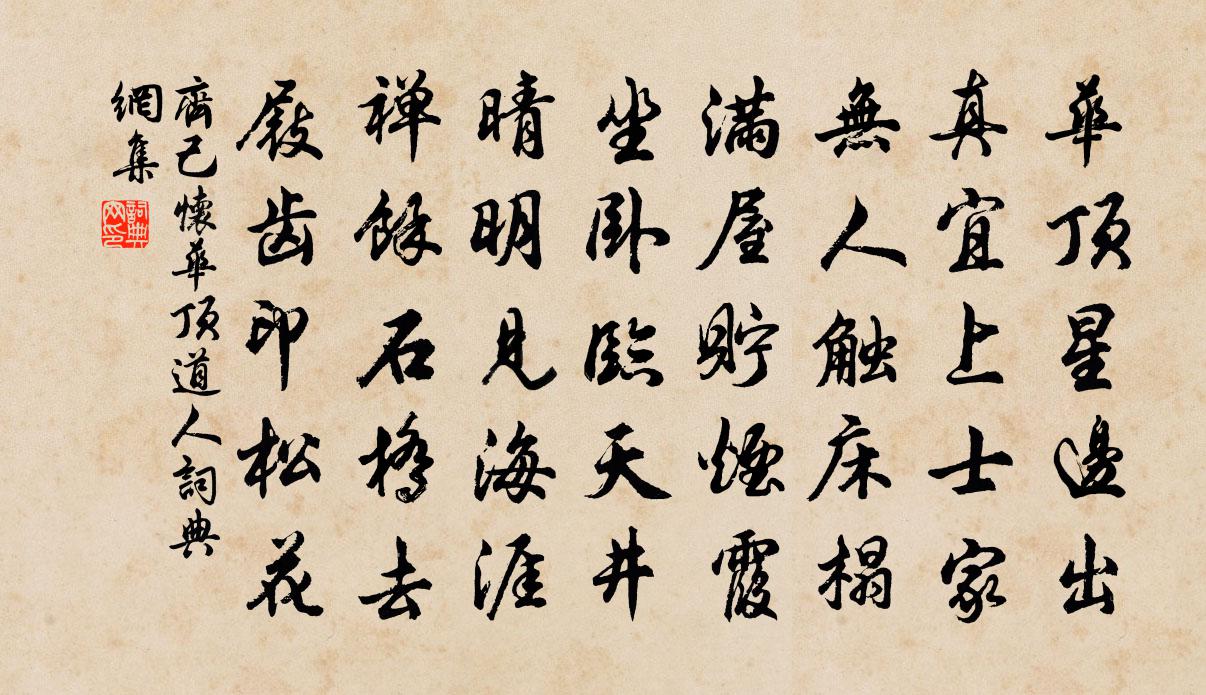 華顶星邊出
真宜上士家
無人触床榻
满屋貯煙霞
坐卧臨天井
晴明見海涯
禅餘石橋去
屐齿印松花
齊己懷華顶道人詞典
網集
詞典
网印